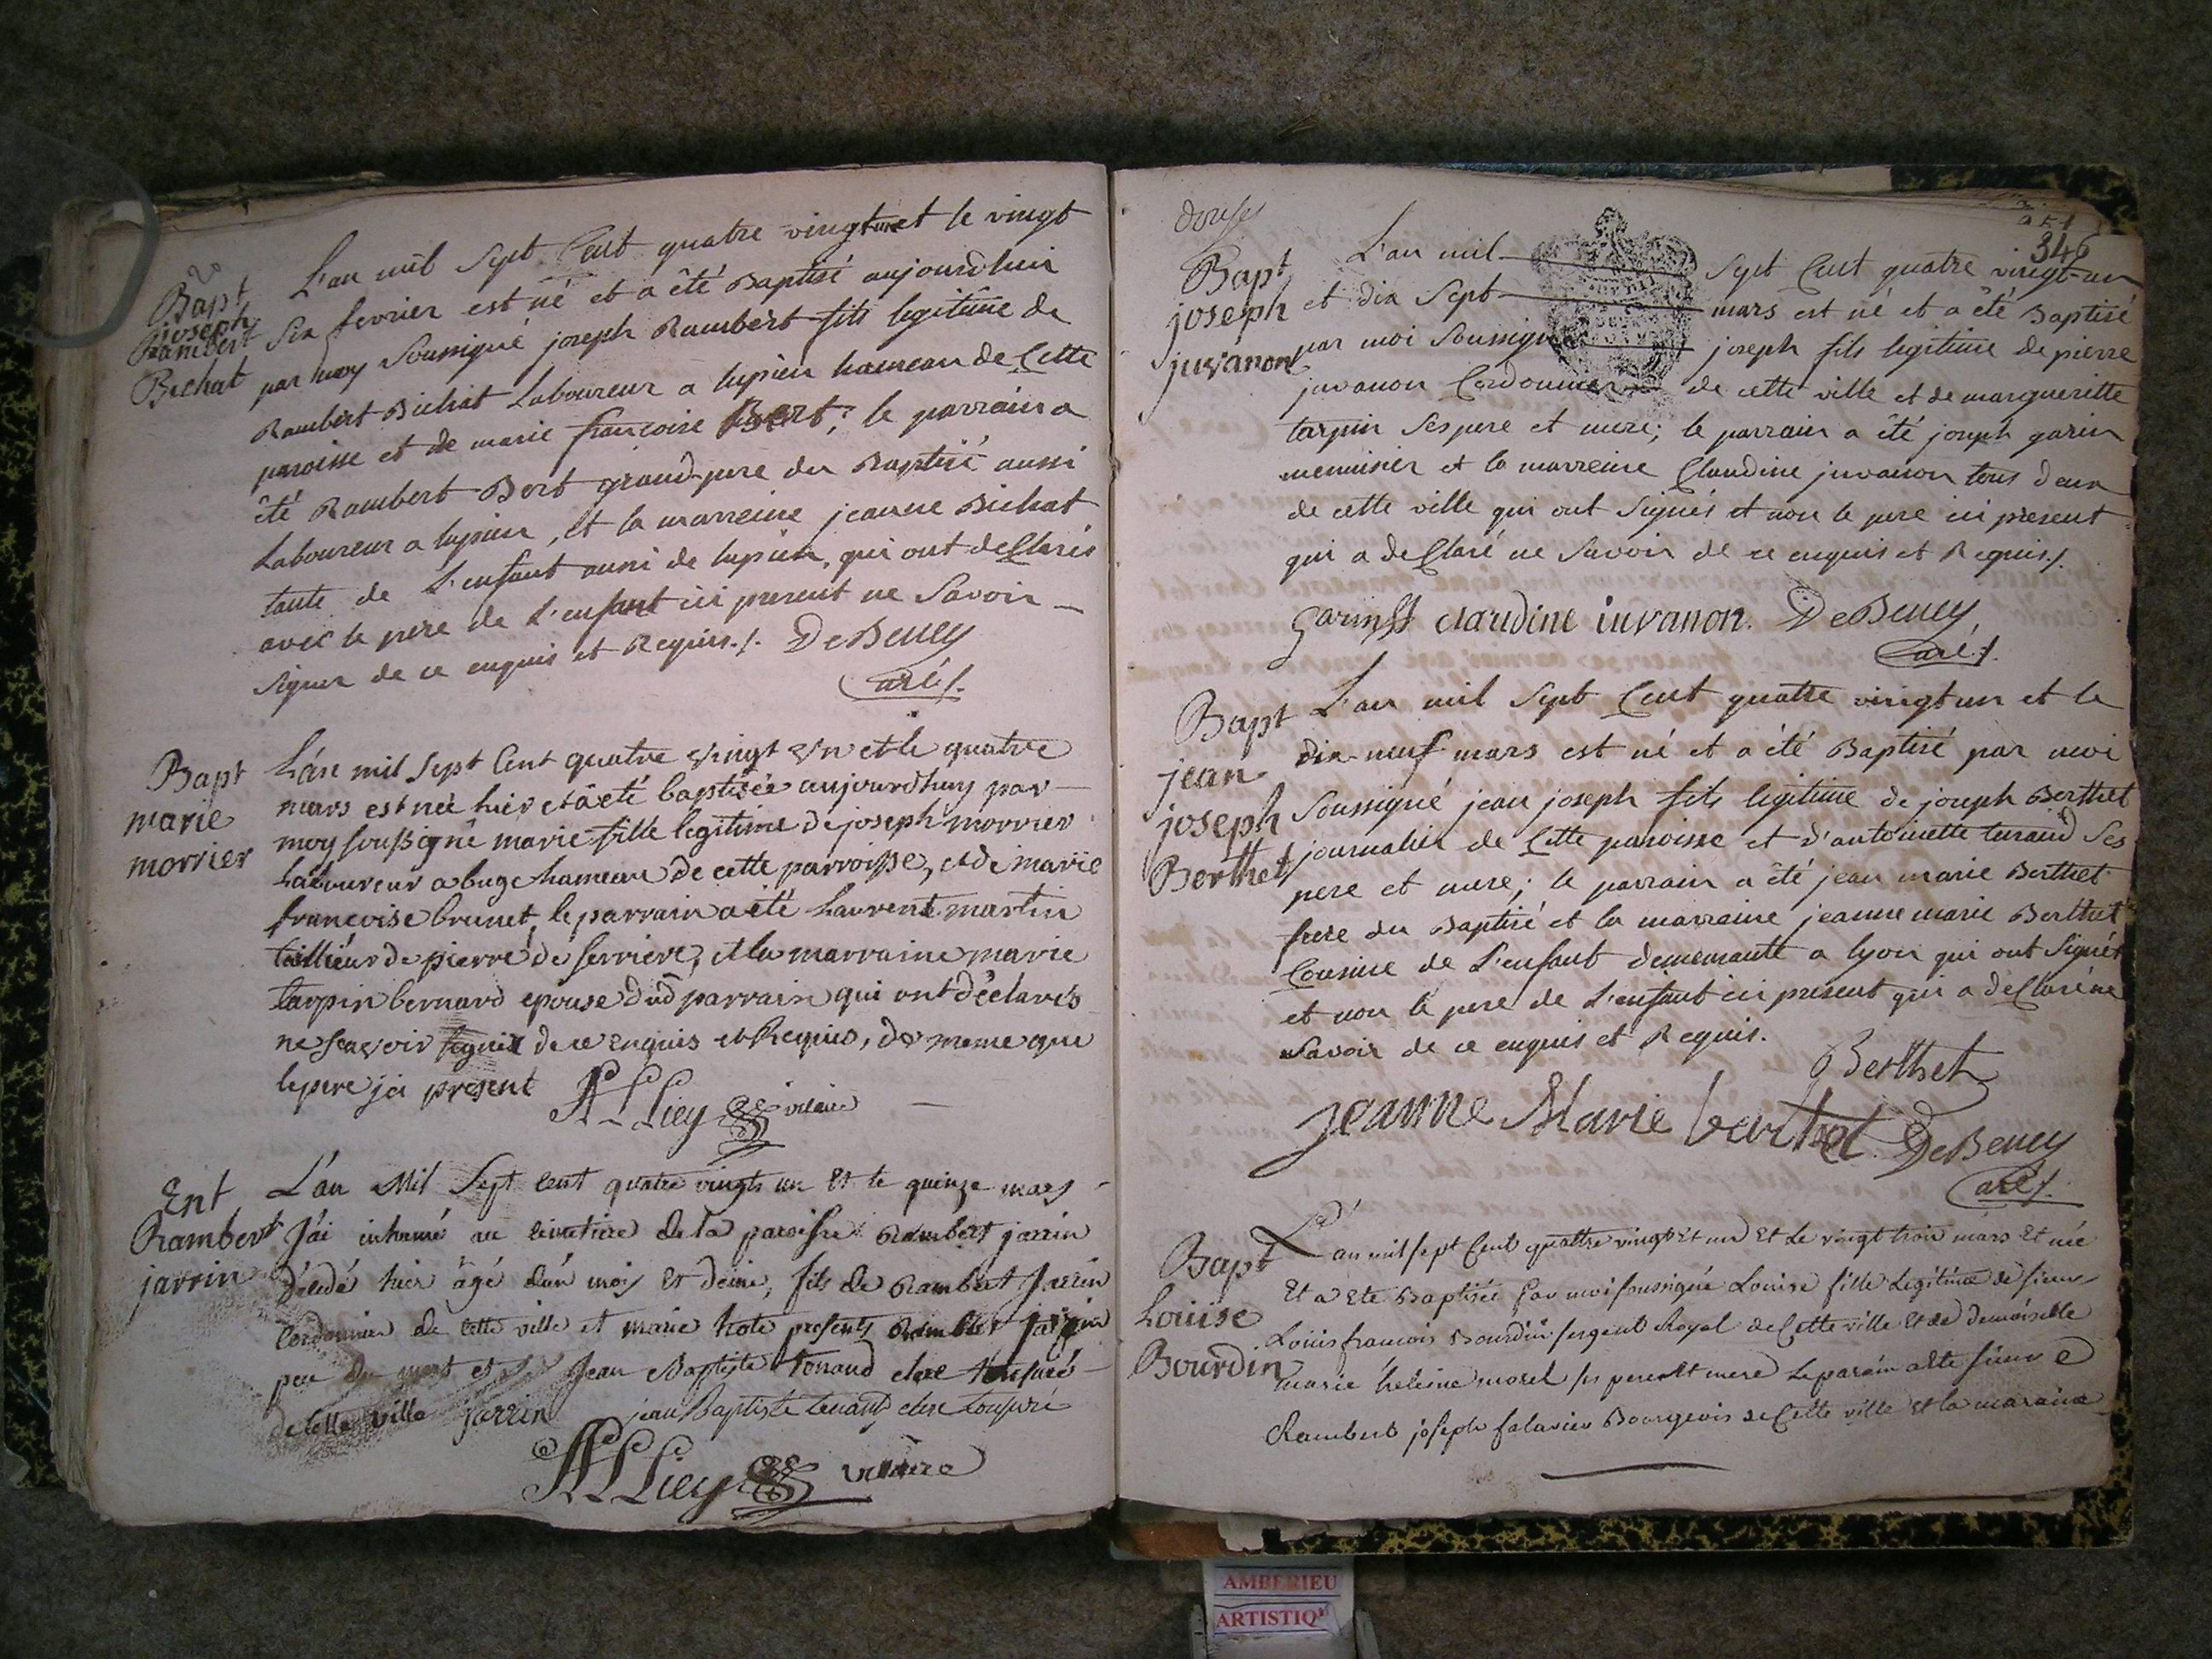 Bapt
joseph
Rambert
Bichat
L'an mil Sept Cent quatre vingt un et le vingt
Six fevrier est né et a êté Baptisé aujourdhui
par moy Soussigné joseph Rambert fils legitime de
Rambert Bichat Laboureur a lupieu hameau de Cette
paroisse et de marie francoise Bert; le parrain a
êté Rambert Bert grand-pere du Baptisé aussi
Laboureur a lupieu, et la marreine jeanne Bichat
tante de L'enfant aussi de lupieu, qui ont deClarés
avec le pere de L'enfant ici present ne Savoir
signer de ce enquis et Requis./. DeBeney
Curé./.
Bapt
marie
morrier
L'an mil sept Cent quatre vingt un et le quatre
mars est née hier et a eté baptisée aujourdhuy par
moy soussigné marie fille legitime de joseph morrier
Laboureur a buge hameau de cette parroisse, et de marie
francoise brunet, le parrain a eté Laurent martin
tailleur de pierre de serriere, et la marraine marie
tarpin bernard epouse dud parrain qui ont déclarés
ne scavoir signer de ce enquis et Requis, de meme que
le pere ici present
vicaire
Ent
Rambert
jarrin
L'an Mil Sept cent quatre vingts un Et le quinze mars
J'ai inhumé au cimetiere de la paroisse Rambert jarrin
décédé hier âgé d'un mois Et demi, fils de Rambert Jarrin
Cordonnier de cette ville et marie hote presents Rambert jarrin
pere du mort et Jean Baptiste tenand clerc tonsuré
de cette ville jarrin jean Baptiste tenand clerc tonsuré
vicaire
douze
346
Bapt
joseph
juvanon
L'an mil Sept Cent quatre vingt-un
et dix Sept mars est né et a êté Baptisé
par moi Soussigné joseph fils legitime de pierre
juvanon Cordonnier de cette ville et de marguerite
tarpin Ses pere et mere; le parrain a êté joseph garin
menuisier et la marreine Claudine juvanon tous deux
de cette ville qui ont Signés et non le pere ici present
qui a deClaré ne Savoir de ce enquis et Requis./.
Garin claudine iuvanon. DeBeney,
Curé./.
Bapt
jean
joseph
Berthet
L'an mil Sept Cent quatre vingt un et le
dix-neuf mars est né et a été Baptisé par moi
Soussigné jean joseph fils legitime de joseph Berthet
journalier de Cette paroisse et d'antoinette tenand Ses
pere et mere; le parrain a êté jean marie Berthet
frere du Baptisé et la marraine jeanne marie Berthet
Cousine de L'enfant demeurante a lyon qui ont Signés
et non le pere de L'enfant ici present qui a deClaré ne
Savoir de ce enquis et Requis.
Berthet
jeanne Marie berthet DeBeney
Curé./.
Bapt
Louise
Bourdin
L'an mil sept Cent quattre vingt Et un Et Le vingt trois mars Et née
Et a Ete Baptisée Par moi soussigné Louise fille Legitime de sieur
Louis francois Bourdin sergent Royal de Cette ville Et de demoiselle
marie heleine morel ses pere Et mere Le parain a Ete sieur
Rambert joseph falavier Bourgeois de Cette ville Et la maraine
AMBERIEU
ARTISTIQ